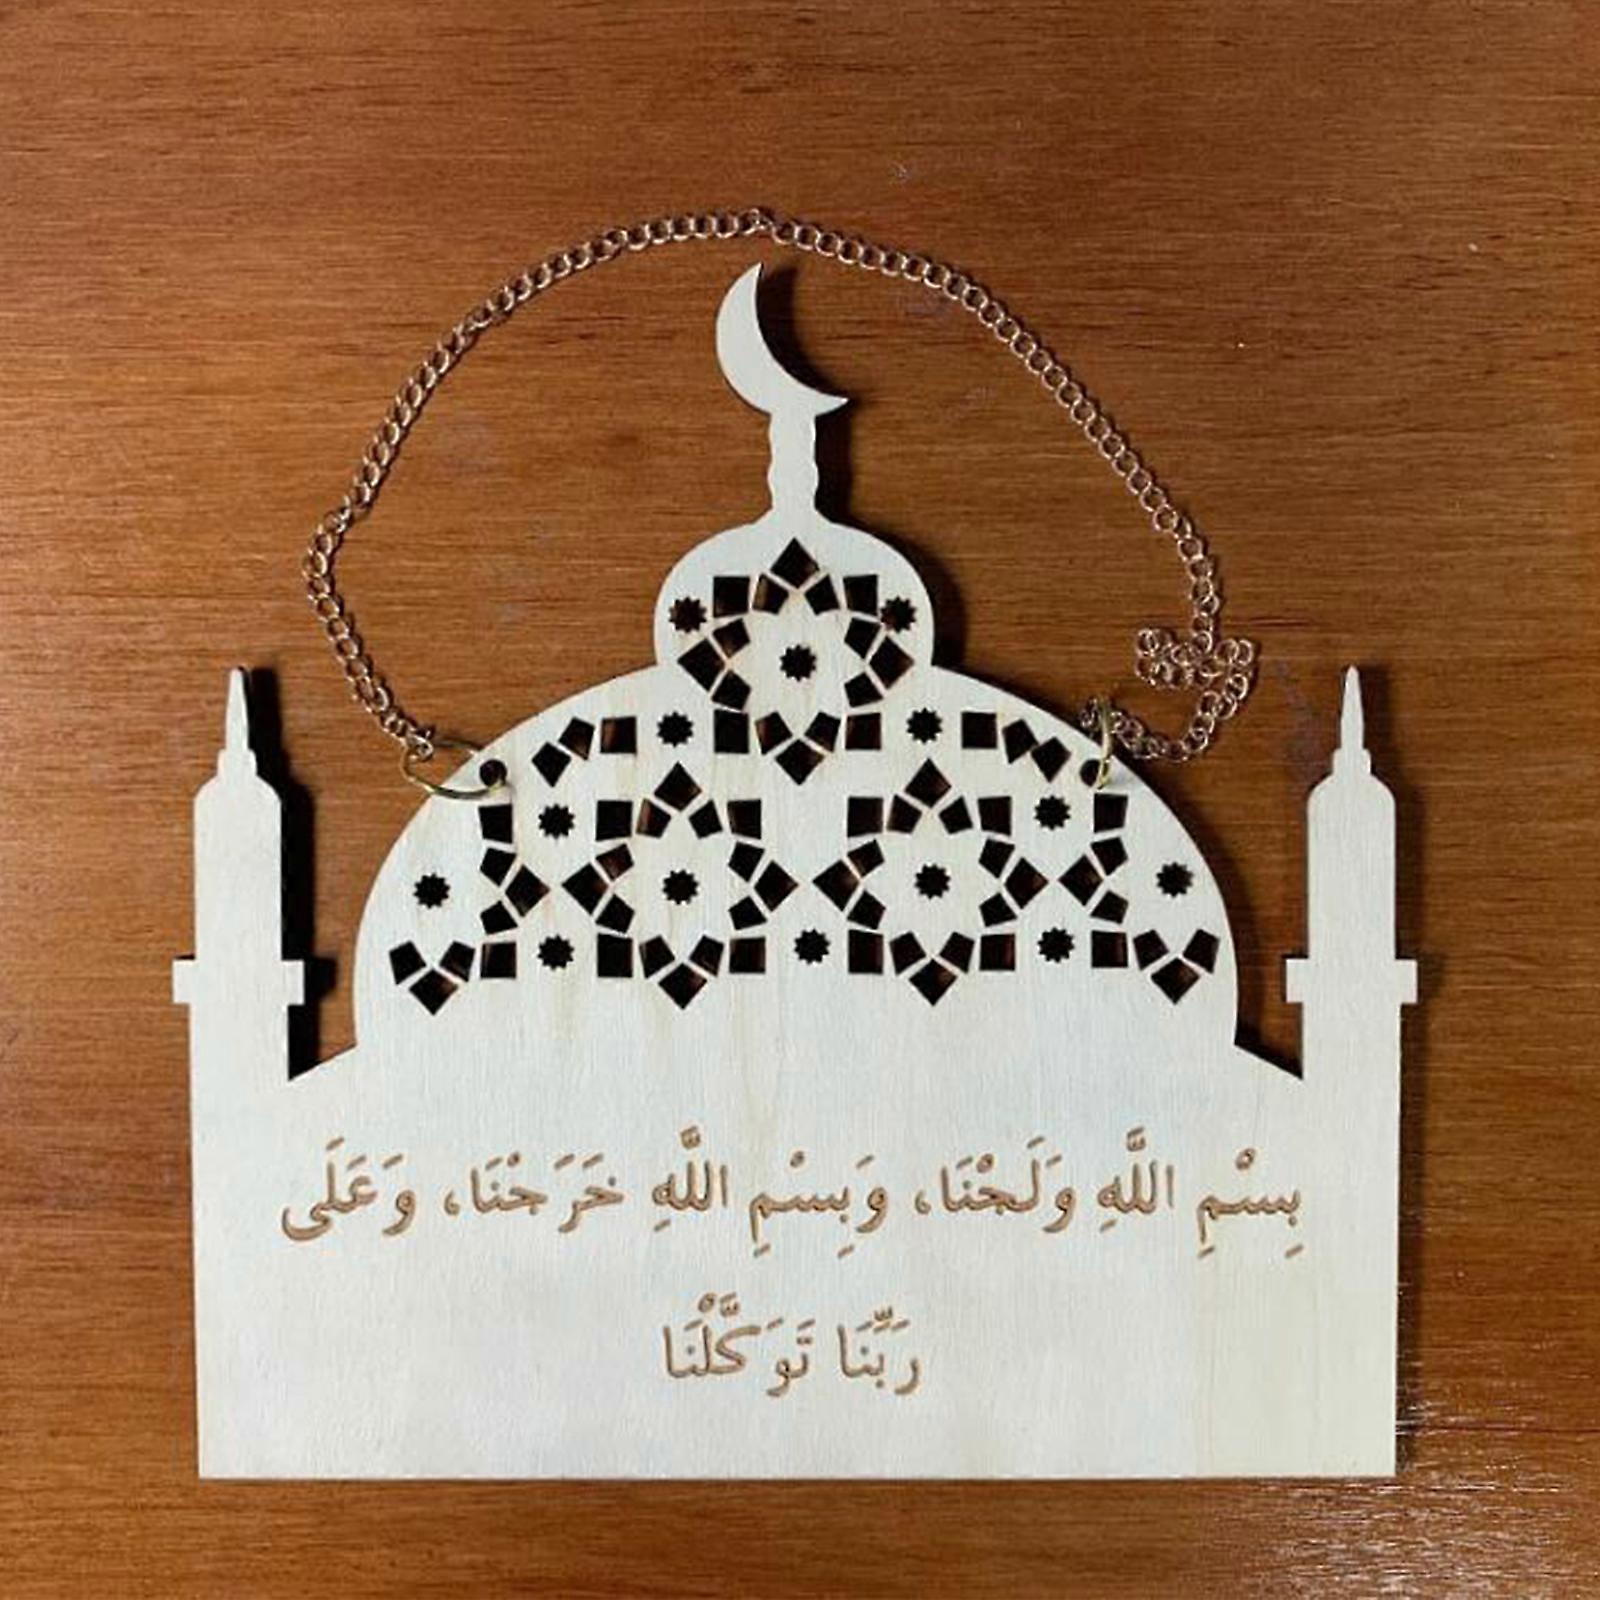 بِسْمِ اللَّهِ وَلَجْنَا، وَبِسْمِ اللَّهِ خَرَجْنَا، وَعَلَى
رَبِّنَا تَوَكَّلْنَا